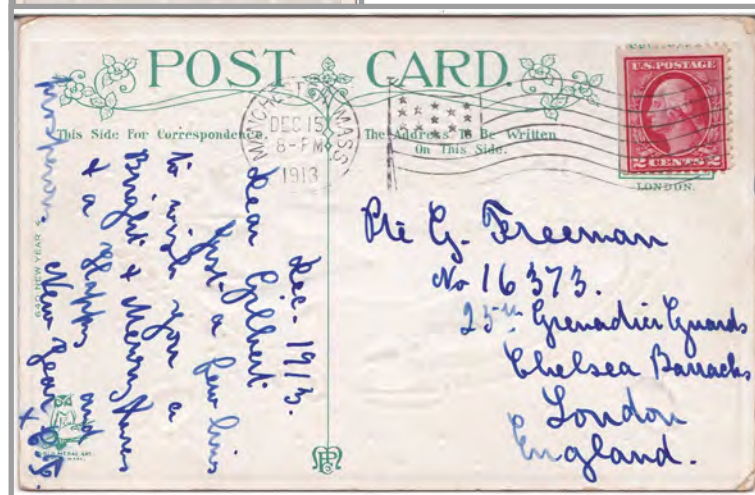 POST CARD.
This Side For Correspondence.
The Address To Be Written
On This Side.
MANCHESTER MASS
DEC 15
8-PM
1913
U.S. POSTAGE
2 CENTS 2
LONDON.
Dec. 1913.
Dear Gilbert
Just a few lines
to wish you a
Bright & Merry Xmas
& a Happy and
New Year
Pte G. Freeman
No 16373.
Grenadier Guards
Chelsea Barracks
London
England.
640 NEW YEAR